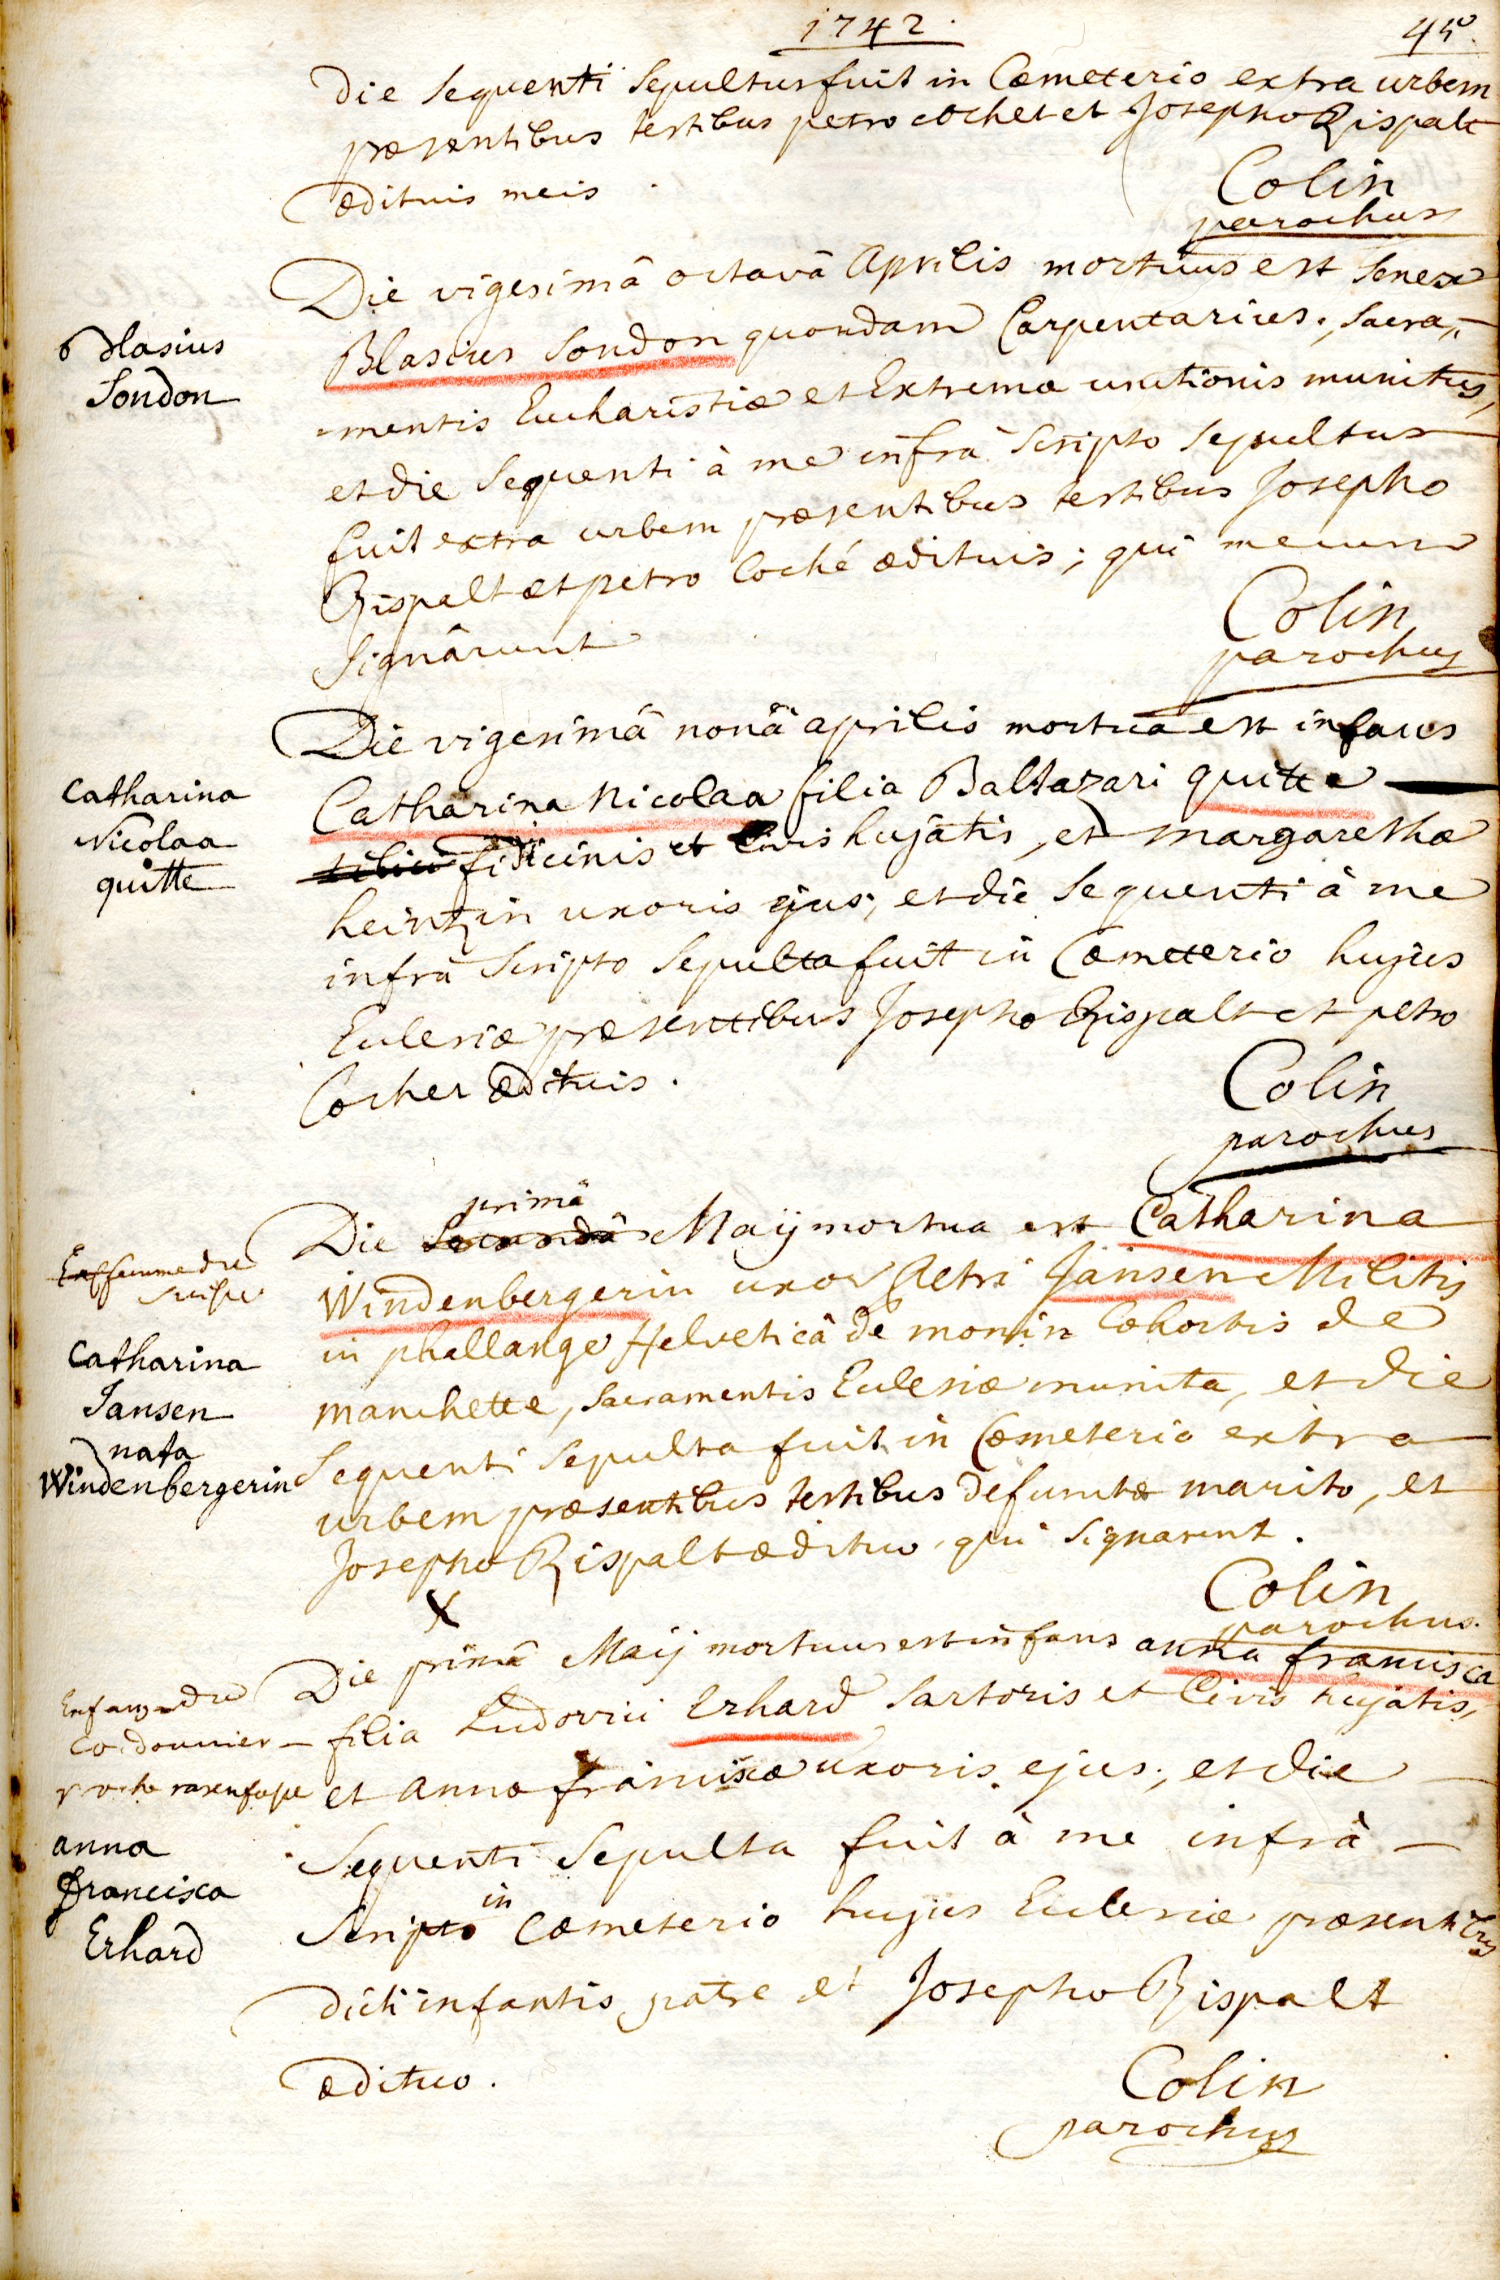 1742.
45
Die sequenti sepultus fuit in Cœmeterio extra urbem
præsentibus testibus petro Cochet et Josepho Rispalt
ædituis meis.
Colin
parochus
Die vigesimâ octavâ Aprilis mortuus est senex
Blasius Sondon
Blasius Sondon quondam Carpentarius, sacra-
mentis Eucharistiæ et Extremæ unctionis munitus,
et die sequenti à me infrà scripto sepultus
fuit extra urbem præsentibus testibus Josepho
Rispalt et petro Coché ædituis; qui mecum
signârunt
Colin
parochus
Die vigesimâ nonâ aprilis mortua est infans
Catharina
Nicolaa
quitte
Catharina Nicolaa filia Baltazari quitte
fidicinis et Civis hujatis, et Margarethæ
heintzin uxoris ejus; et die sequenti à me
infrà scripto sepulta fuit in Cœmeterio hujus
Ecclesiæ præsentibus Josepho Rispalt et petro
Cochet ædituis.
Colin
parochus
primâ
Die secundâ Maij mortua est Catharina
Windenbergerin uxor Petri Jansen Militis
in phallange Helveticâ de monnin Cohortis de
Catharina
Jansen
nata
Windenbergerin
manchette, sacramentis Ecclesiæ munita, et die
sequenti sepulta fuit in Cœmeterio extra
urbem præsentibus testibus defunctæ marito, et
Josepho Rispalt ædituo, qui signarunt.
Colin
parochus.
X
Die primâ Maij mortuus est infans anna francisca
filia Ludovici Erhard Sartoris et Civis hujatis,
et annæ franciscæ uxoris ejus; et die
anna
francisca
Erhard
sequenti sepulta fuit à me infrà
scripto in Cœmeterio hujus Ecclesiæ præsentibus
dicti infantis patre et Josepho Rispalt
ædituo.
Colin
parochus